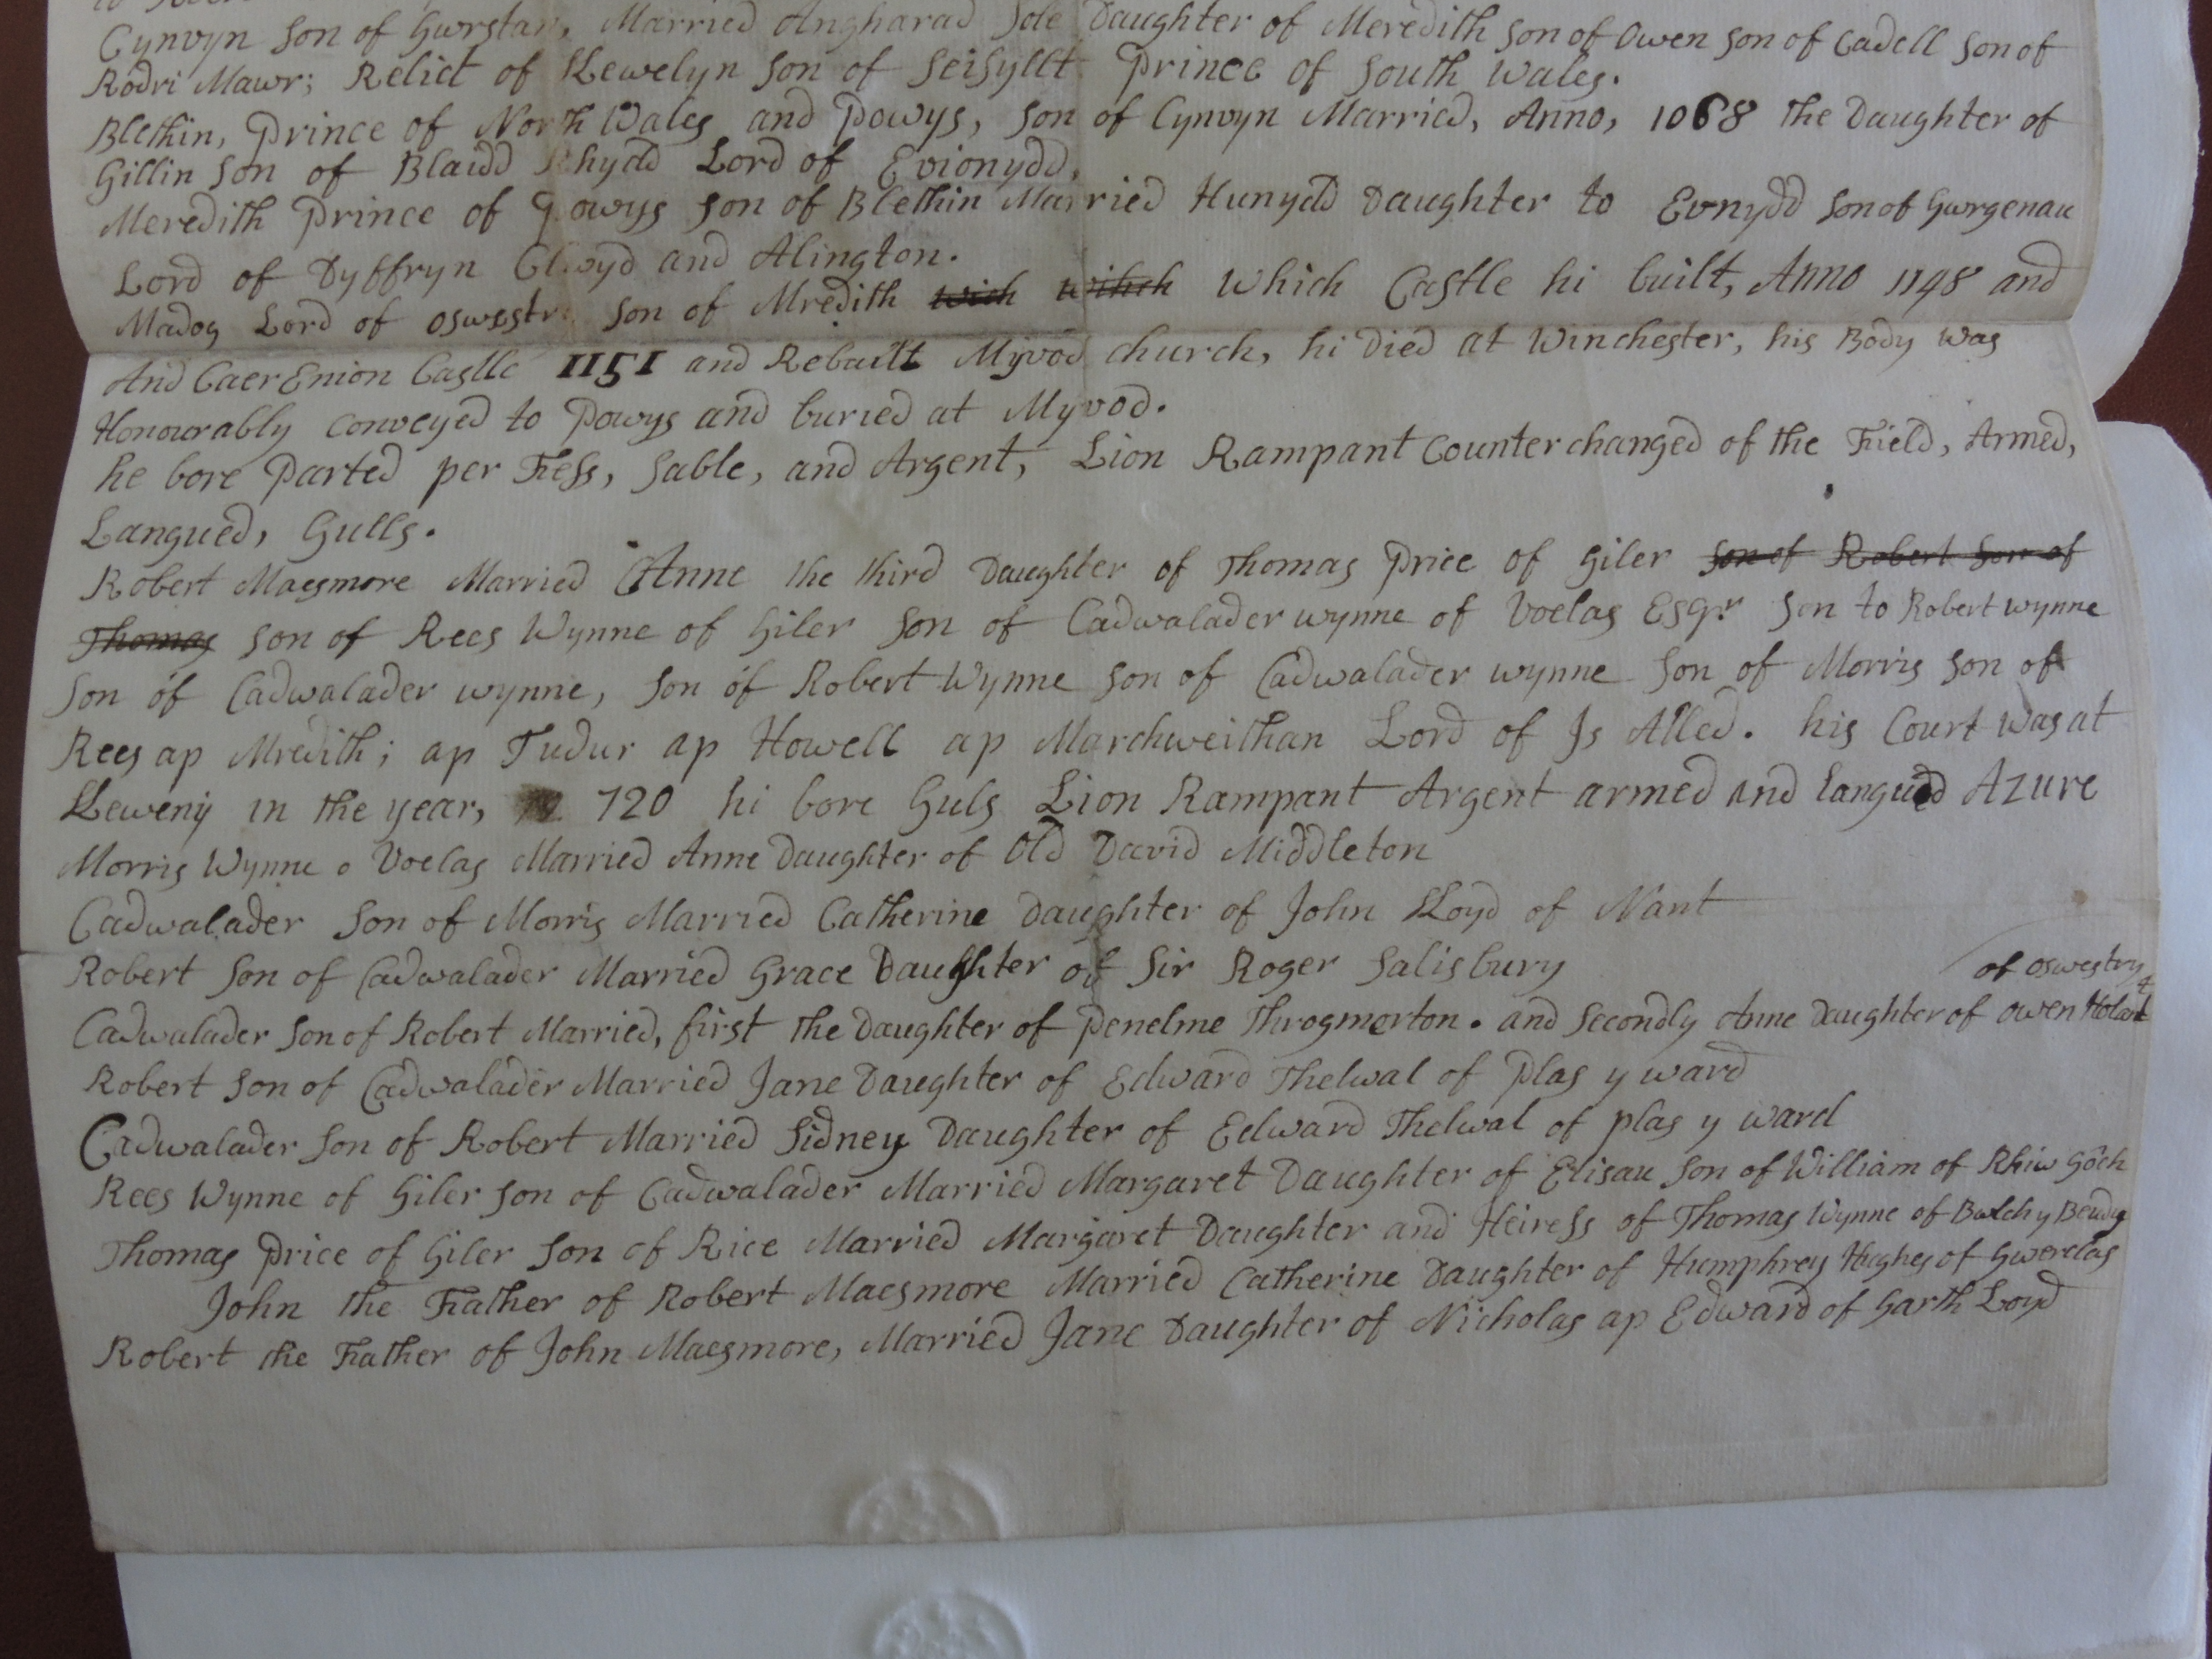 Cynvyn Son of Gwrstan, Married Angharad Sole Daughter of Meredith Son of Owen Son of Cadell Son of
Rodri Mawr; Relict of LLewelyn Son of Seisyllt Prince of South Wales.
Blethin, Prince of North Wales and Powys, Son of Cynvyn Married, Anno, 1068 the Daughter of
Gillin Son of Blaidd Rhydd Lord of Evionydd,
Meredith Prince of Powys Son of Blethin Married Hunydd Daughter to Evnydd Son of Gwrgenau
Lord of Dyffryn Clwyd and Alington.
Madog Lord of Oswestry Son of Mredith wich which Which Castle hi built, Anno 1148 and
And Caer Enion Castle 1151 and Rebuilt Myvod church, hi Died at Winchester, his Body was
Honourably Conveyed to Powys and buried at Myvod.
he bore Parted per Fess, Sable, and Argent, Lion Rampant Counterchanged of the Field, Armed,
Langued, Gulls.
Robert Maesmore Married Anne the third Daughter of Thomas Price of Giler Son of Robert Son of
Thomas Son of Rees Wynne of Giler Son of Cadwalader wynne of Voelas Esqr. Son to Robert wynne
Son of Cadwalader wynne, Son of Robert Wynne Son of Cadwalader wynne Son of Morris Son of
Rees ap Mredith; ap Tudur ap Howell ap Marchweithan Lord of Is Alled. his Court was at
LLeweny in the year, 720 hi bore Guls Lion Rampant Argent armed and langued Azure
Morris Wynne o Voelas Married Anne Daughter of Old David Middleton
Cadwalader Son of Morris Married Catherine Daughter of John LLoyd of Nant
Robert Son of Cadwalader Married Grace Daughter of Sir Roger Salisbury
of Oswestry
Cadwalader Son of Robert Married, first the Daughter of Penelme Throgmorton. and Secondly Anne Daughter of Owen
Robert Son of Cadwalader Married Jane Daughter of Edward Thelwal of Plas y ward
Cadwalader Son of Robert Married Sidney Daughter of Edward Thelwal of plas y ward
Rees Wynne of Giler Son of Cadwalader Married Margaret Daughter of Elisau Son of William of Rhiw Gôch
Thomas Price of Giler Son of Rice Married Margaret Daughter and Heiress of Thomas Wynne of Bwlch y Beudy
John the Father of Robert Maesmore Married Catherine Daughter of Humphrey Hughes of Gwerclas
Robert the Father of John Maesmore, Married Jane Daughter of Nicholas ap Edward of Garth Loyd